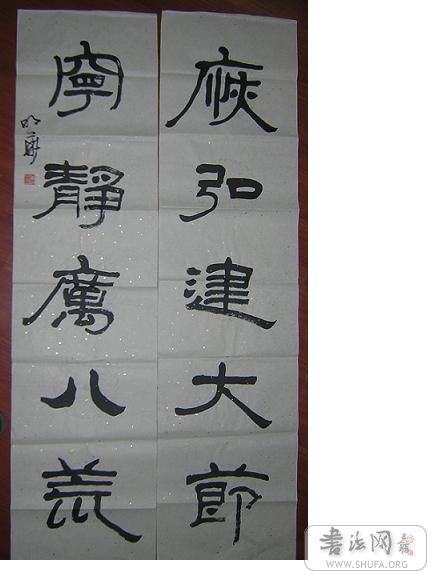 恢弘建大節
寧靜厲八荒
书法网
WWW.SHUFA.ORG